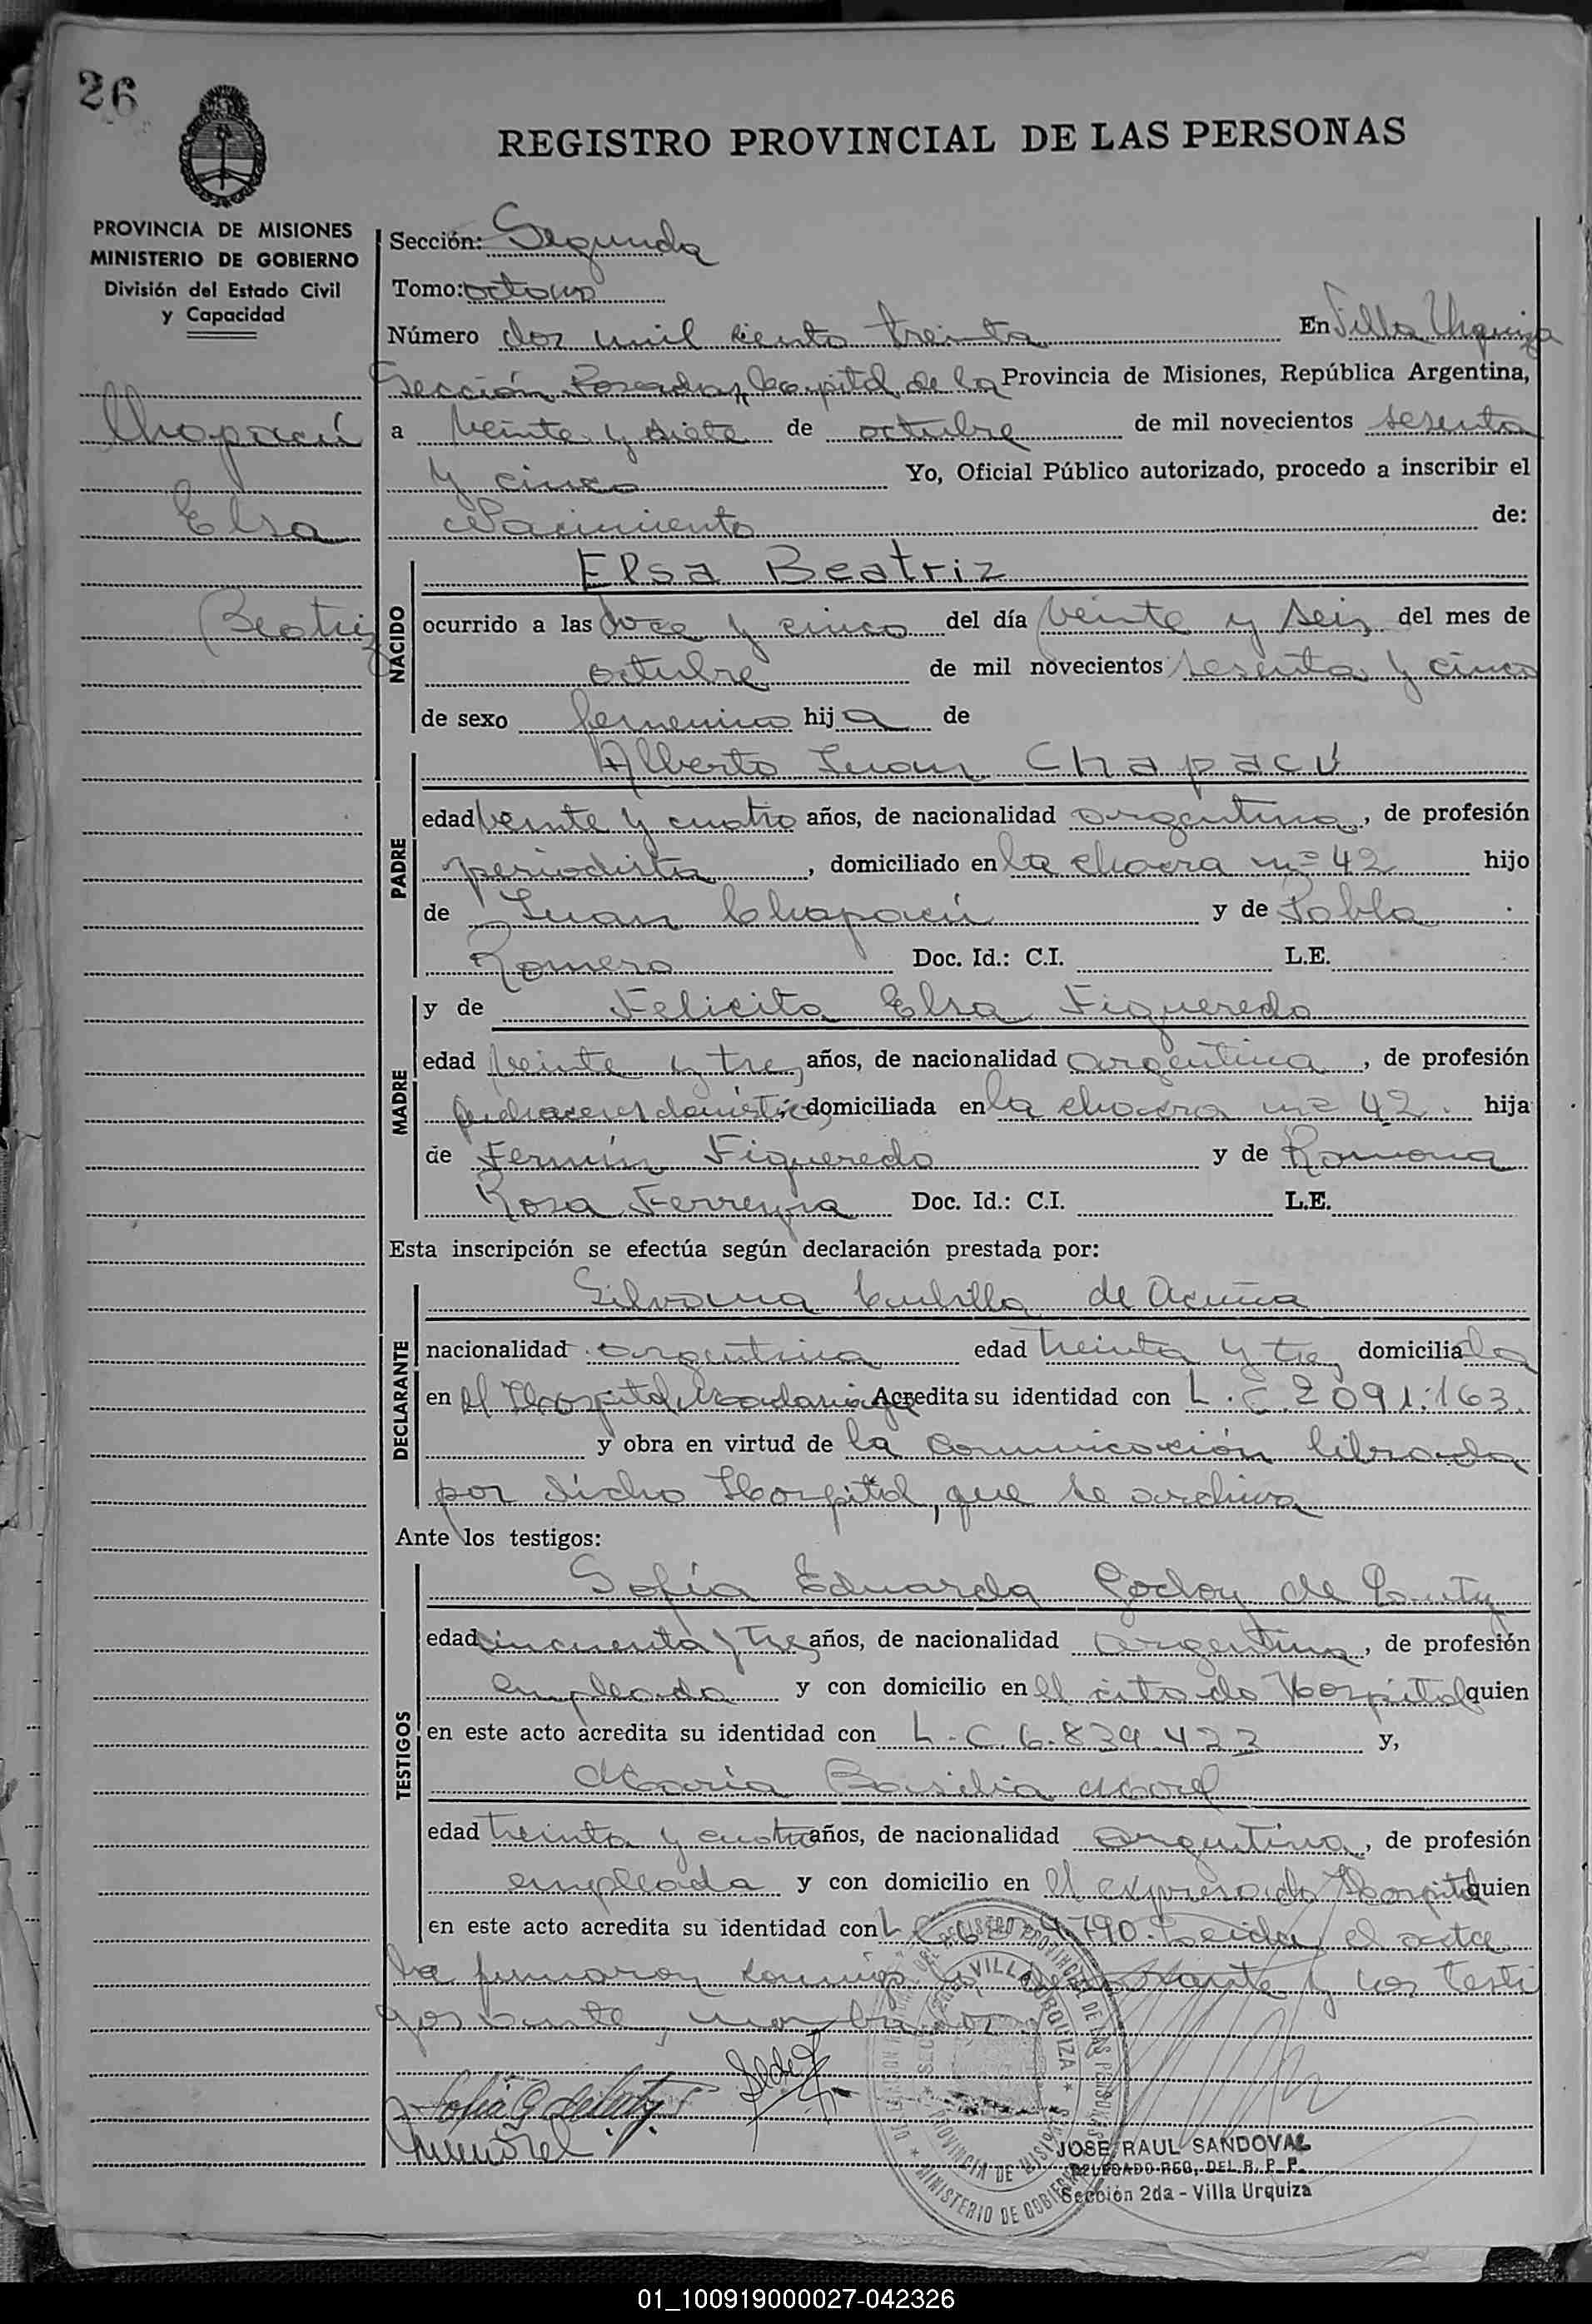 26
REGISTRO PROVINCIAL DE LAS PERSONAS
PROVINCIA DE MISIONES
MINISTERIO DE GOBIERNO
División del Estado Civil
y Capacidad
Chapacú
Elsa
Beatriz
Sección: Segunda
Tomo: octavo
Número dos mil ciento treinta En Villa Urquiza
Sección Posadas, Capital de la Provincia de Misiones, República Argentina,
a veinte y siete de octubre de mil novecientos sesenta
y cinco Yo, Oficial Público autorizado, procedo a inscribir el
Nacimiento de:
NACIDO
Elsa Beatriz
ocurrido a las doce y cinco del día veinte y seis del mes de
octubre de mil novecientos sesenta y cinco
de sexo femenino hija de
PADRE
Alberto Juan Chapacú
edad veinte y cuatro años, de nacionalidad argentina, de profesión
periodista, domiciliado en la chacra nº 42 hijo
de Juan Chapacú y de Pabla
Romero Doc. Id.: C.I. L.E.
MADRE
y de Felicita Elsa Figueredo
edad veinte y tres años, de nacionalidad argentina, de profesión
quehaceres domésticos domiciliada en la chacra nº 42. hija
de Fermín Figueredo y de Ramona
Rosa Ferreyra Doc. Id.: C.I. L.E.
Esta inscripción se efectúa según declaración prestada por:
DECLARANTE
Silvana de Acuña
nacionalidad argentina edad treinta y tres domiciliada
en el Hospital Madariaga Acredita su identidad con L.C. 2091.163.
y obra en virtud de la comunicación librada
por dicho Hospital, que se archiva
Ante los testigos:
TESTIGOS
Sofía Eduarda Godoy de
edad cincuenta y tres años, de nacionalidad argentina, de profesión
empleada y con domicilio en el citado Hospital quien
en este acto acredita su identidad con L.C. 6.839.423 y,
María Basilia Morel
edad treinta y cuatro años, de nacionalidad argentina, de profesión
empleada y con domicilio en el expresado Hospital quien
en este acto acredita su identidad con L.C. 4.790. Leida el acta
la firmaron conmigo la declarante y los testi
gos ante nombrados
VILLA URQUIZA
PROVINCIA DE MISIONES
MINISTERIO DE GOBIERNO
JOSE RAUL SANDOVAL
DELEGADO REG. DEL R. P. P.
Sección 2da - Villa Urquiza
01_100919000027-042326